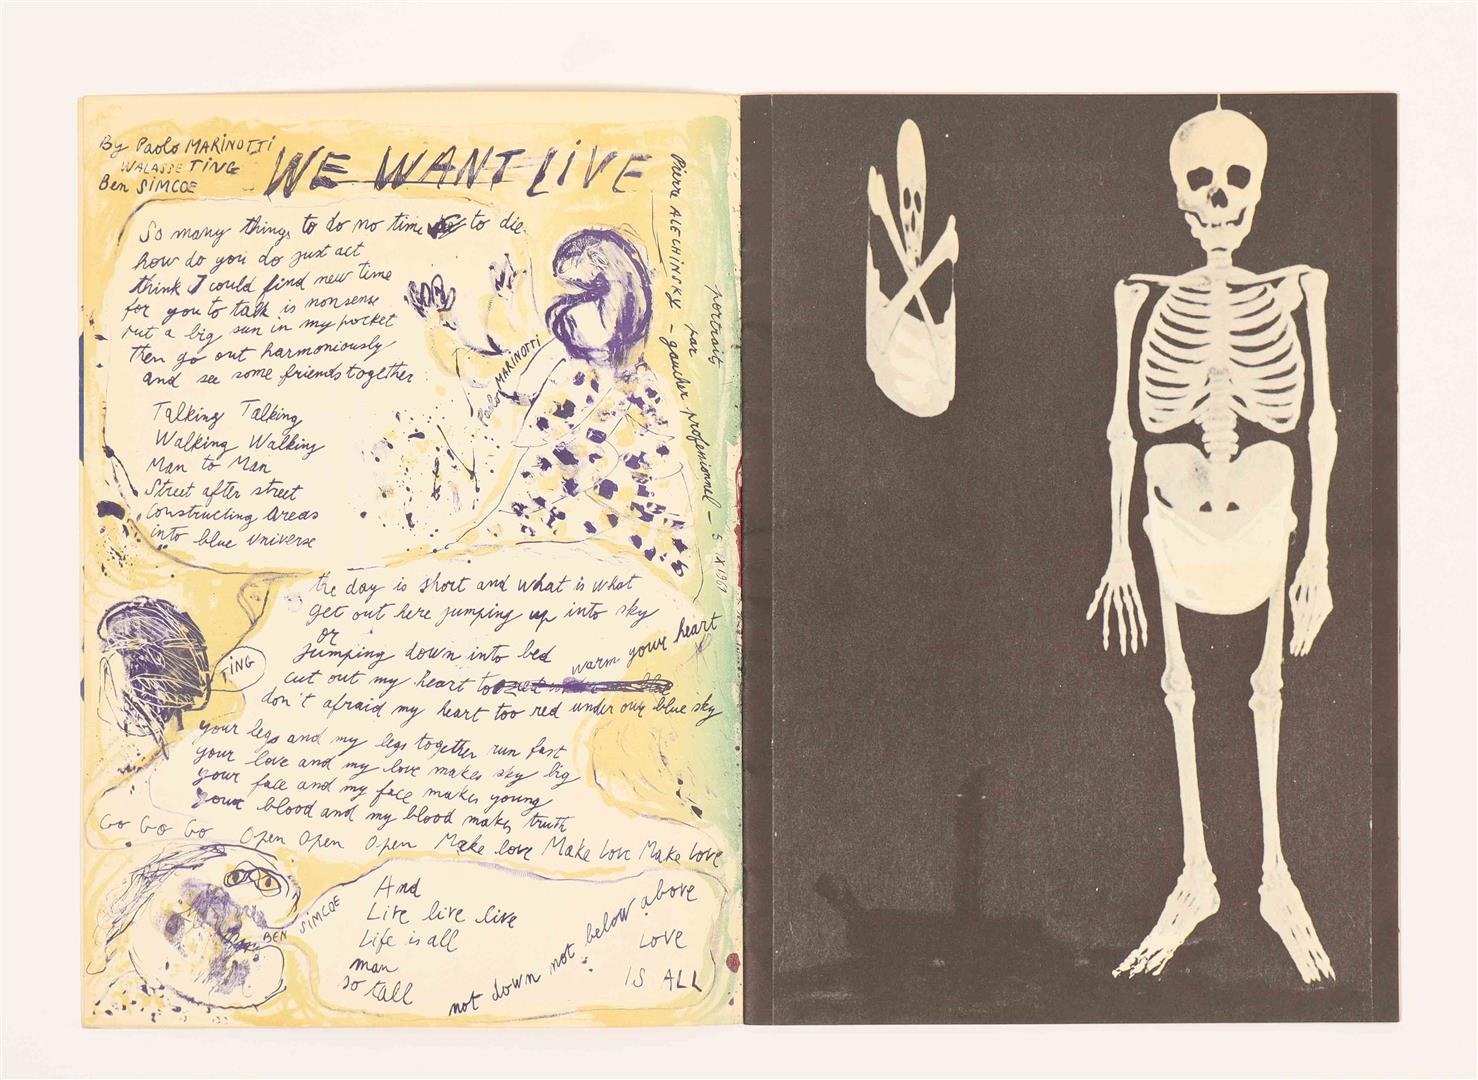 By Paolo MARINOTTI
WALASSE TING
Ben SIMCOE
WE WANT LIVE
So many things to do no time to die
how do you do just act
think I could find new time
for you to talk is nonsense
put a big sun in my pocket
then go out harmoniously
and see some friends together
Talking Talking
Walking Walking
Man to Man
Street after street
Constructing areas
into blue universe
Paolo MARINOTTI
the day is short and what is what
get out here jumping up into sky
or
jumping down into bed
cut out my heart to warm your heart
don't afraid my heart too red under our blue sky
your legs and my legs together run fast
your love and my love makes sky big
your face and my face makes young
your blood and my blood makes truth
TING
Go Go Go Open Open Open Make love Make love Make love
BEN SIMCOE
And
Live live live
Life is all
man
so tall
not down not below above
LOVE
IS ALL
Pierre ALECHINSKY - gaucher professionnel -
portraits par